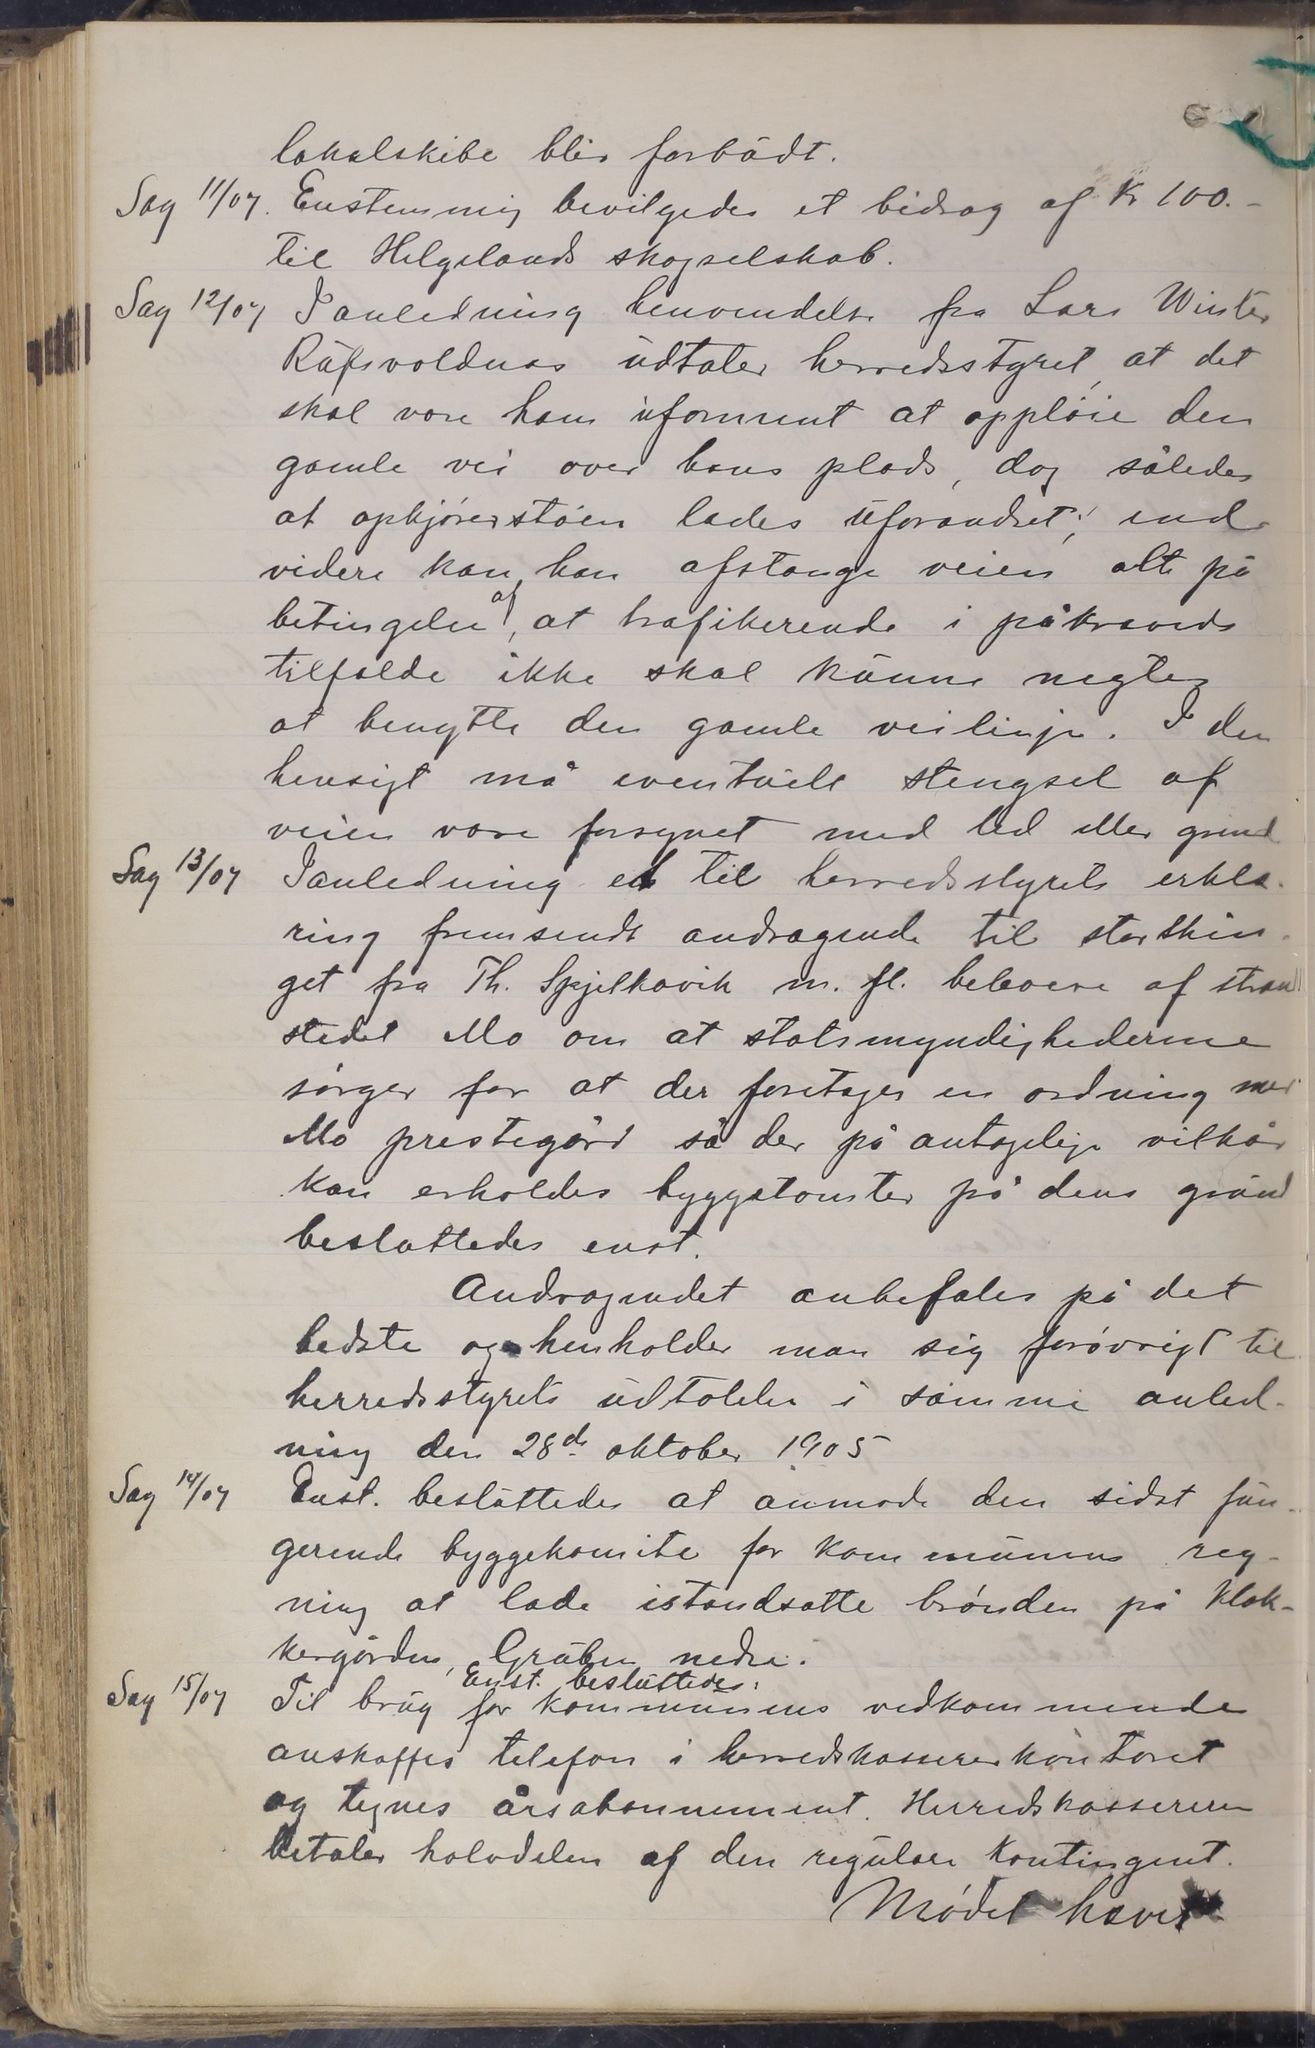 lokalskibe blir forbudt.
Sag 11/07. Enstemmig bevilgedes et bidrag af Kr 100.-
til Helgelands skogselskab.
Sag 12/07 I anledning henvendelse fra Lars Winter
udtaler herredsstyret, at det
skal være ham uforment at oppløie den
gamle vei over hans plads, dog således
at opkjørerstøen lades uforandret; end
videre kan han afstænge veien alt på
betingelse af, at trafikerende i påkrævede
tilfælde ikke skal kunne negtes
at benytte den gamle veilinje. I den
hensigt må eventuelt stengsel af
veien være forsynet med led eller grind
Sag 13/07 I anledning et til herredsstyrets erklæ-
ring fremsendt andragende til storthin-
get fra Th. Spjelkavik m. fl. beboere af strand
stedet Mo om at statsmyndighederne
sørger for at der foretages en ordning med
Mo prestegård så der på antagelige vilkår
kan erholdes byggetomter på dens grund
besluttedes enst.
Andragendet anbefales på det
bedste og henholder man sig forøvrigt til
herredsstyrets udtalelse i samme anled-
ning den 28de oktober 1905
Sag 14/07 Enst. besluttedes at anmode den sidst fun-
gerende byggekomite for kommunens reg-
ning at lade istandsætte brønden på Klok-
kergården, Gruben nedre.
Enst. besluttedes:
Sag 15/07 Til brug for kommunens vedkommende
anskaffes telefon i herredskassererkontoret
og tegnes årsabonnement. Herredskassereren
betaler halvdelen af den regulære kontingent.
Mødet hævet